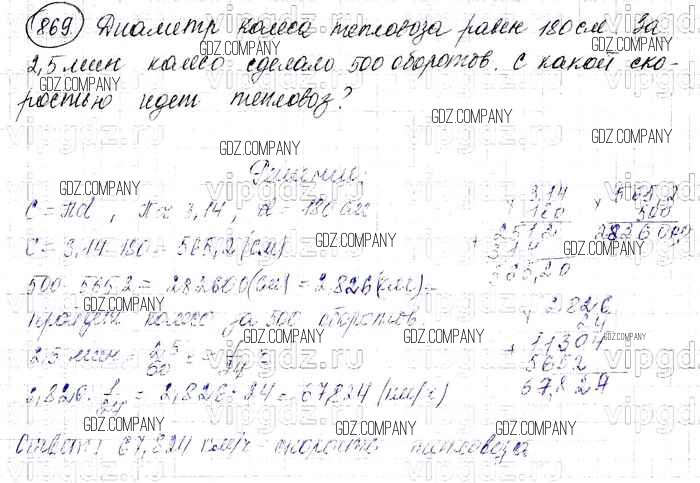 869 Диаметр колеса тепловоза равен 180 см За
2,5 мин колесо сделало 500 оборотов. С какой ско-
ростью идет тепловоз?
Решение:
C = πd, π ≈ 3,14, d = 180 см
C = 3,14 · 180 = 565,2 (см)
500 · 565,2 = 282600 (см) = 2,826 (км) -
пройдет колесо за 500 оборотов
2,5 мин = 2,5/60 = 1/24 ч
2,826 : 1/24 = 2,826 · 24 = 67,824 (км/ч)
Ответ: 67,824 км/ч - скорость тепловоза
3,14
180
2512
314
565,20
565,2
500
282600,0
2,826
24
11304
5652
67,824
GDZ.COMPANY
vipgdz.ru